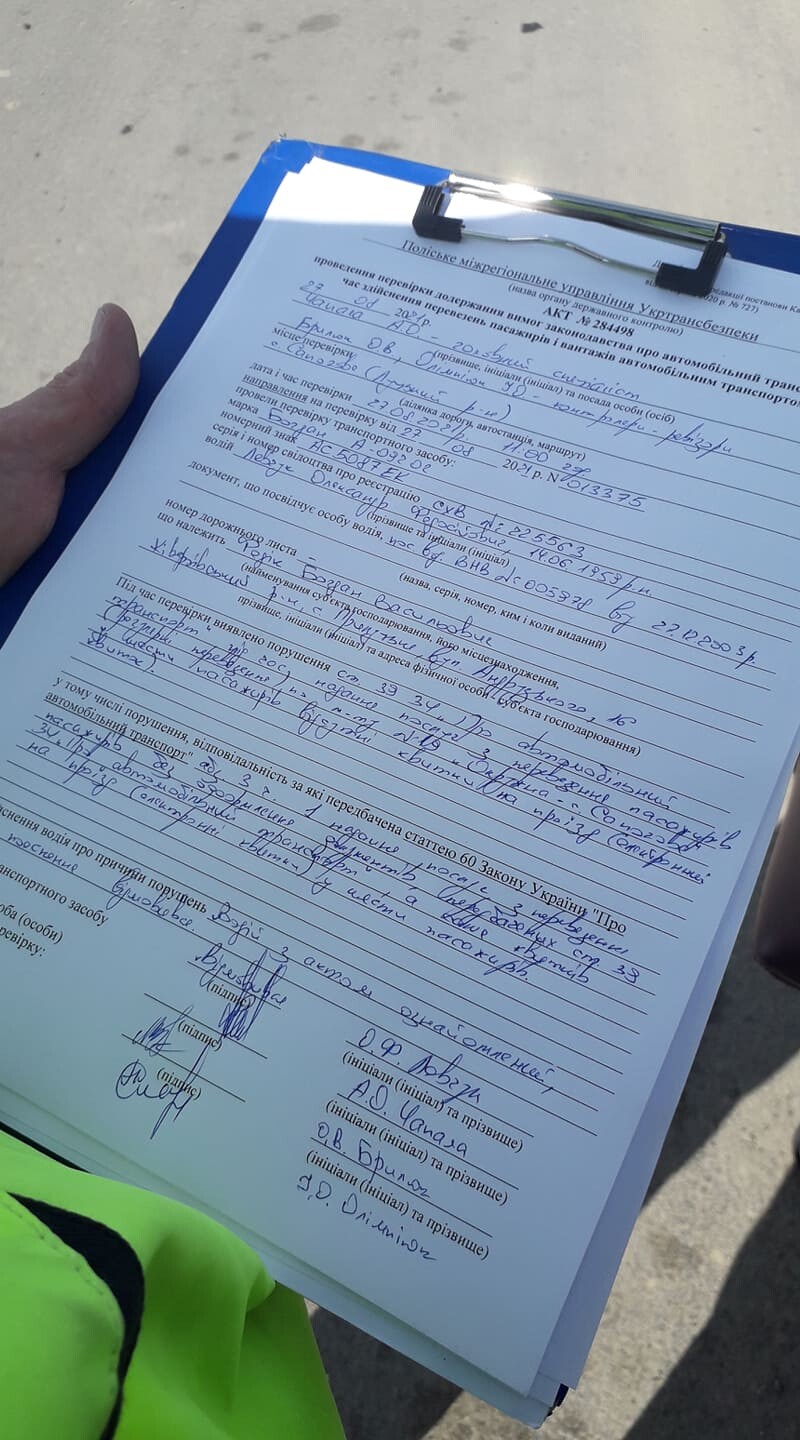 редакції постанови Ка
2020 р. № 727)
Поліське міжрегіональне управління Укртрансбезпеки
(назва органу державного контролю)
АКТ № 284498
проведення перевірки додержання вимог законодавства про автомобільний транс
час здійснення перевезень пасажирів і вантажів автомобільним транспортом
27 08 2021р.
Чапала А.О. - головний спеціаліст
(прізвище, ініціали (ініціал) та посада особи (осіб)
Брилюк О.В., Олімпіюк - контролери-ревізори
місце перевірки
(ділянка дороги, автостанція, маршрут)
с. Сапогове (Луцький р-н)
дата і час перевірки 27.08.2021р. 11:00
направлення на перевірку від 27 08 2021 р. № 013375
провели перевірку транспортного засобу:
марка Богдан А-092.02
номерний знак АС5087ЕК
серія і номер свідоцтва про реєстрацію СХВ № 225563
водій Олександр 14.06.1959р.н.
(прізвище та ініціали (ініціал)
документ, що посвідчує особу водія, пос. вод. ВНВ № 005978 від 27.12.2003р.
(назва, серія, номер, ким і коли виданий)
номер дорожнього листа –
що належить Федік Богдан Васильович
(найменування суб'єкта господарювання, його місцезнаходження,
Ківерцівський р-н, с. вул. 16
прізвище, ініціали (ініціал) та адреса фізичної особи - суб'єкта господарювання)
Під час перевірки виявлено порушення ст. 39 34 "Про автомобільний
транспорт" під час надання послуг з перевезення пасажирів
(регулярні перевезення) по м-ту "Окружна - с. Сапогове"
у шести пасажирів відсутні квитки на проїзд (електронні
квитки).
у тому числі порушення, відповідальність за які передбачена статтею 60 Закону України "Про
автомобільний транспорт" абз. 3 ч. 1 надання послуг з перевезення
пасажирів без оформлення документів, передбачених ст. 39
34 "Про автомобільний транспорт", а саме квитків
на проїзд (електронні квитки) у шести пасажирів.
снення водія про причини порушень Водій з актом ознайомлений,
пояснення відмовився.
транспортного засобу
(підпис)
О.Ф.
(ініціали (ініціал) та прізвище)
оба (особи)
еревірку:
(підпис)
А.О. Чапала
(ініціали (ініціал) та прізвище)
(підпис)
О.В. Брилюк
(ініціали (ініціал) та прізвище)
Олімпіюк